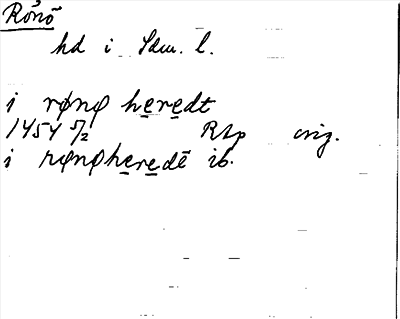 Rönö
hd i Sdm. l.
i rønø heredt
1454 5/2 Rap orig.
i rønøheredē ib.